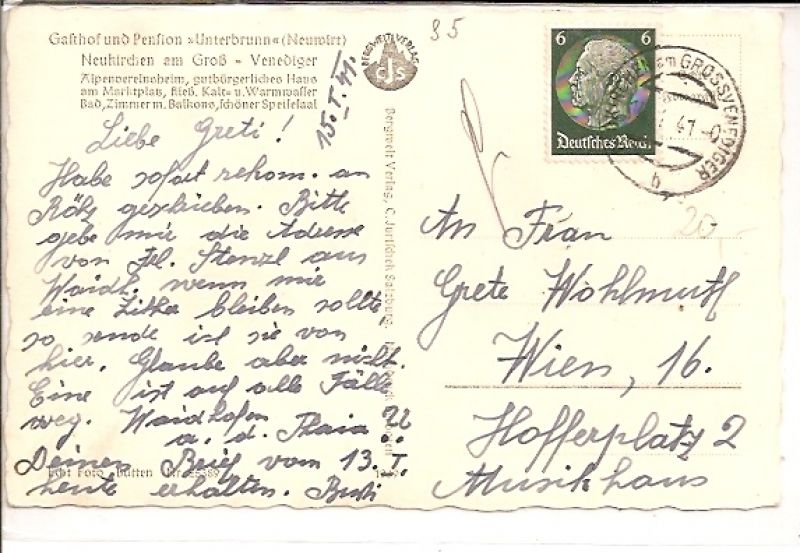 Gasthof und Pension »Unterbrunn« (Neuwirt)
Neukirchen am Groß - Venediger
Alpenvereinsheim, gutbürgerliches Haus
am Marktplatz, fließ. Kalt= u. Warmwasser
Bad, Zimmer m. Balkons, schöner Speisesaal
BERGWELTVERLAG
CJS
35
15. I. 41
Liebe Greti!
Habe sofort rekom. an
Röhz geschrieben. Bitte
gebe mir die Adresse
von Frl. Stenzl aus
Waidh. wenn mir
eine Zither bleiben sollte,
so sende ich sie von
hier. Glaube aber nicht.
Eine ist auf alle Fälle
weg. Waidhofen
a. d. Thaia
Deinen Brief vom 13. I.
heute erhalten.
Echt Foto Bütten Nr.
Bergwelt Verlag, C. Jurischek Salzburg
6 6
Deutsches Reich
am GROSSVENEDIGER
41
b
20,-
An Frau
Grete Wohlmuth
Wien, 16.
Hofferplatz 2
Musikhaus